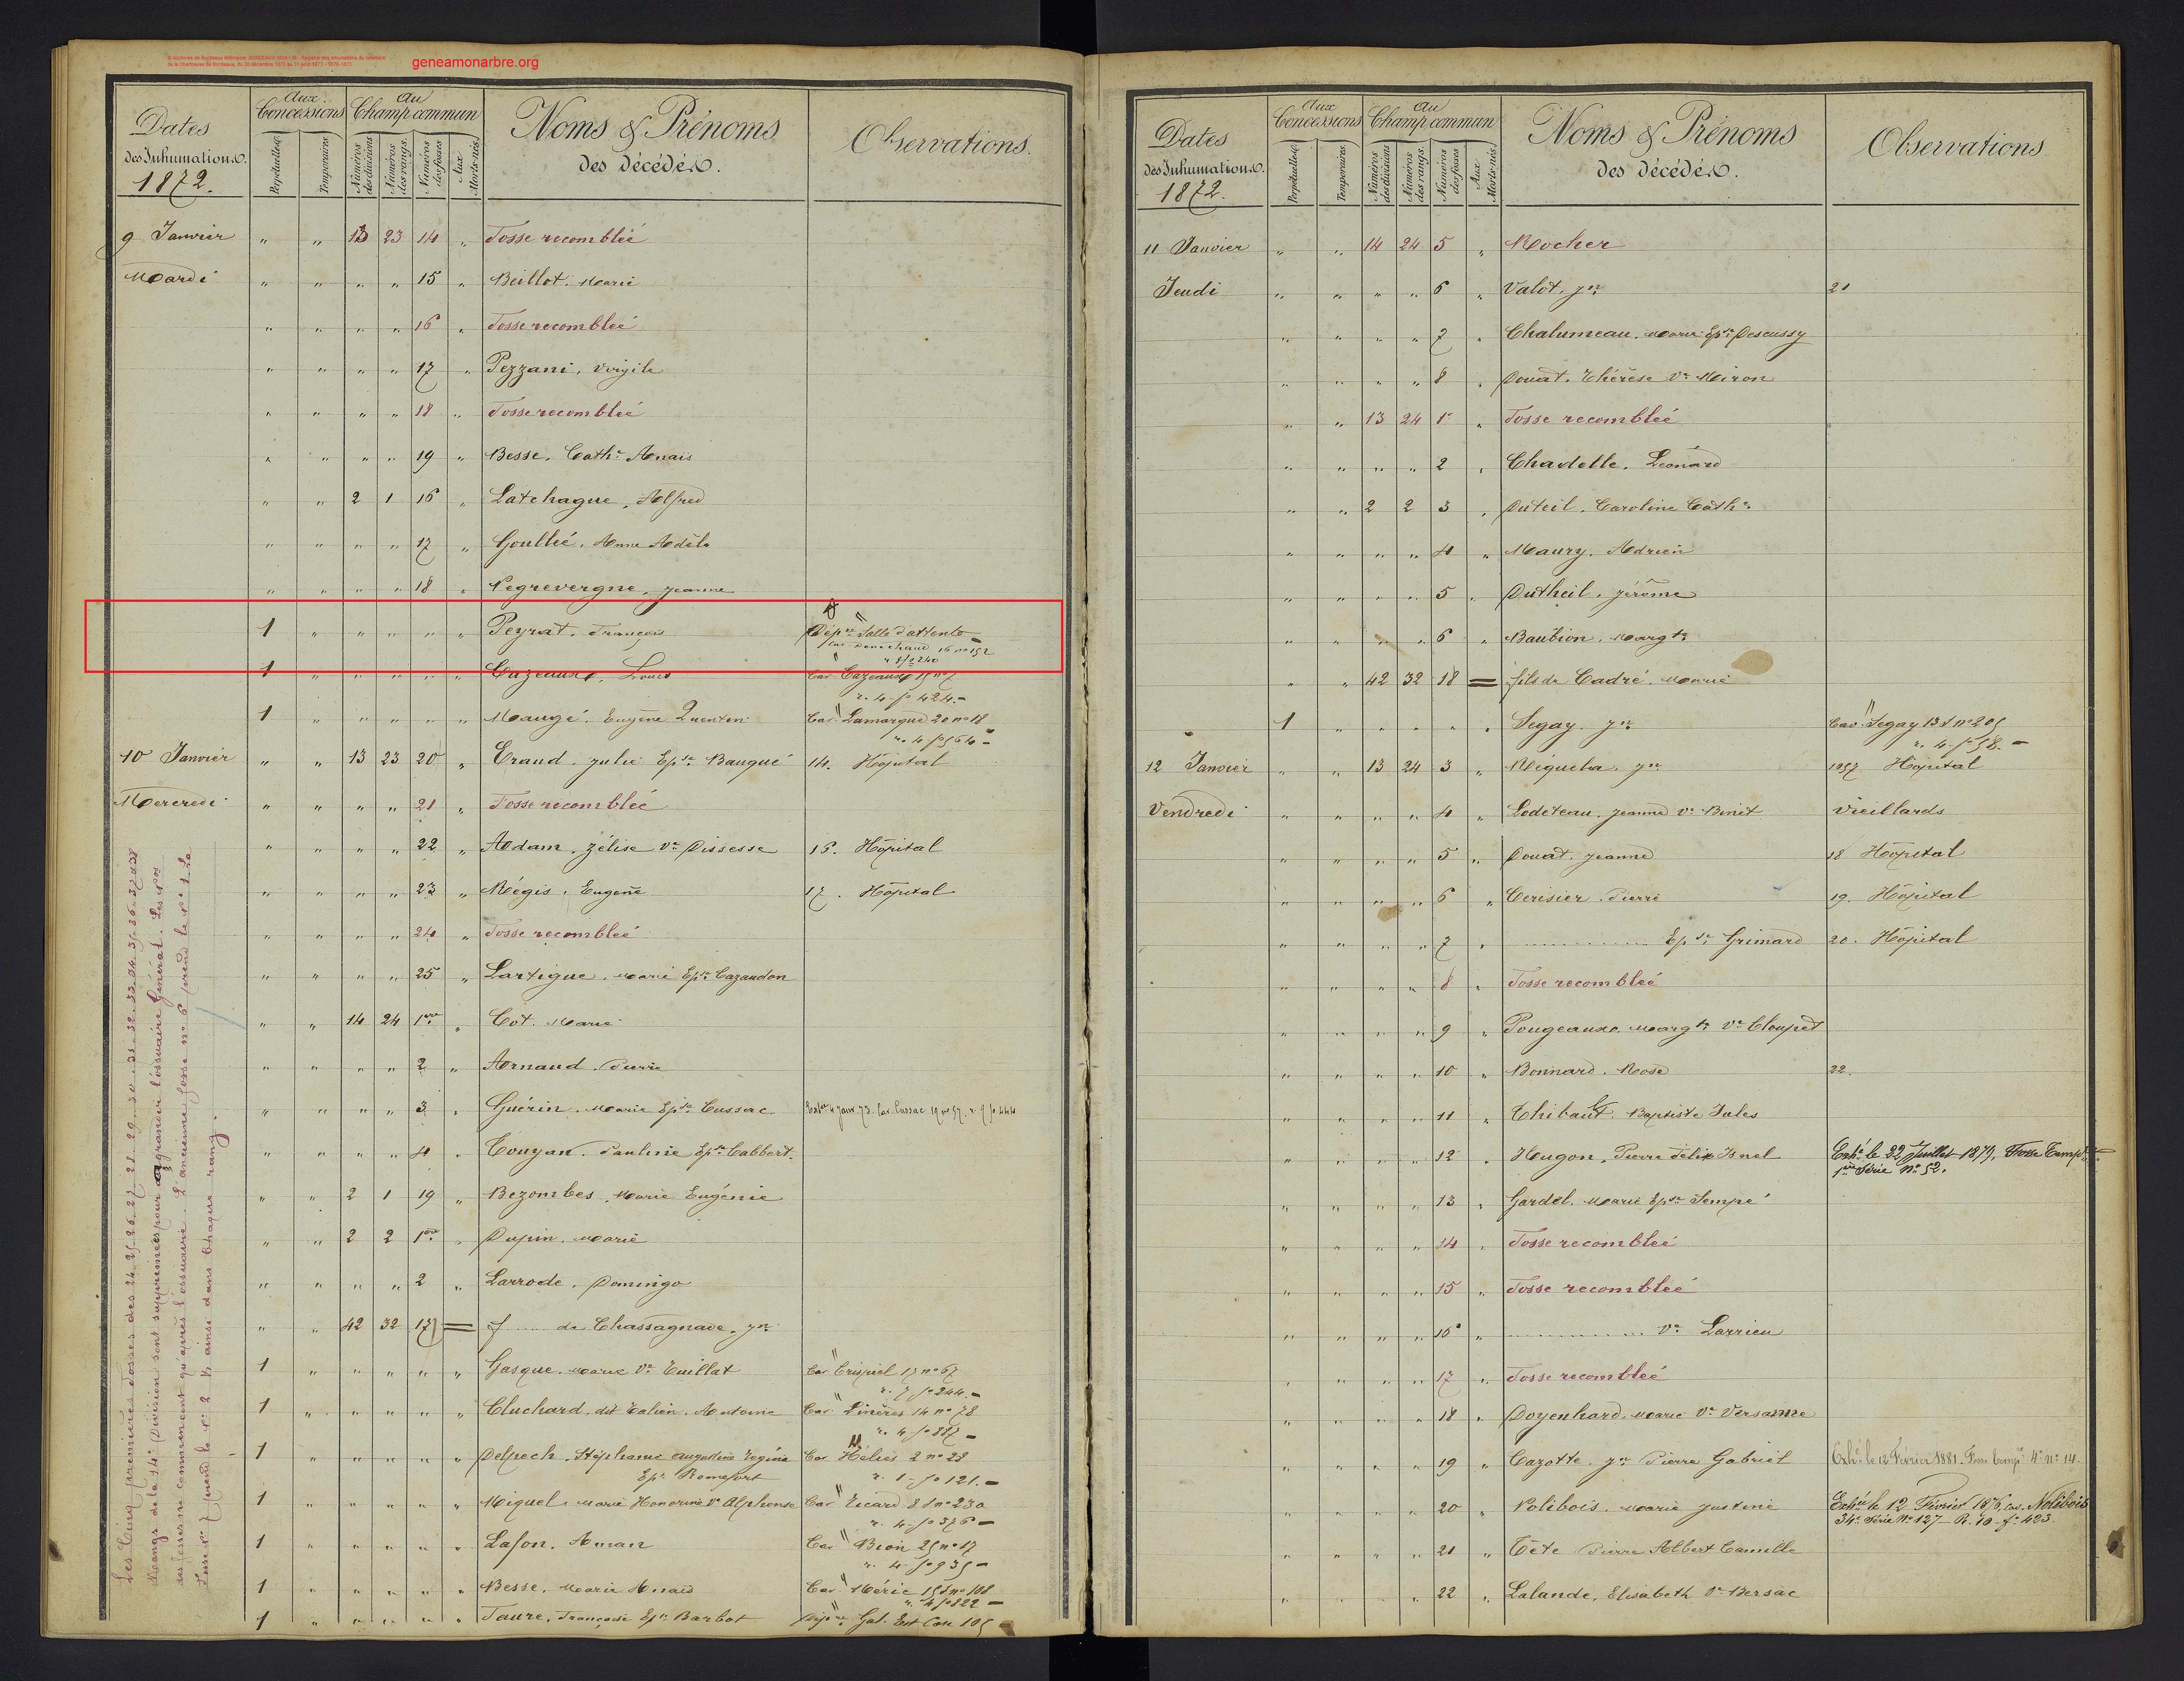 © Archives de Bordeaux Métropole, BORDEAUX
de la Chartreuse de Bordeaux, du 30 décembre 1870 au 31 août 1873 - 1870-1873
geneamonarbre.org
Dates
des Inhumations.
1872.
Aux Concessions
Perpétuelles
Temporaires
Au Champ commun
Numéros des divisions
Numéros des rangs.
Numéros des fosses
Aux Morts-nés.
Noms & Prénoms
des décédés.
Observations.
9 Janvier " " 13 23 14 " Fosse recomblée
Mardi " " " " 15 " Beillot. Marie
" " " " 16 " Fosse recomblée
" " " " 17 " Pezzani, Virgile
" " " " 18 " Fosse recomblée
" " " " 19 " Besse, Cath.e Anaïs
" " 2 1 16 " Latchague, Alfred
" " " " 17 " Goullié, Anne Adèle
" " " " 18 " Negrevergne, Jeanne
1 " " " " " Peyrat. François Dép.re Salle d'attente
16 n° 152
r. 8 f° 240
1 " " " " " Cazeaux, Louis Cav. Cazeaux 15 n° 7
r. 4 f° 424. -
1 " " " " " Maugé. Eugène Quentin Cav. Lamarque 20 n° 18
r. 4 f° 564 -
10 Janvier " " 13 23 20 " Eraud. Julie Ep.se Bauqué 14. Hôpital
Mercredi " " " " 21 " Fosse recomblée
" " " " 22 " Adam, Zélise V.e Dissesse 16. Hôpital
" " " " 23 " Régis. Eugène 17. Hôpital
" " " " 24 " Fosse recomblée
" " " " 25 " Lartigue. Marie Ep.se Cazaudon
" " 14 24 1er " Cot. Marie
" " " " 2 " Arnaud. Pierre
" " " " 3 " Guérin. Marie Ep.se Cussac Exh.ée 4 Janv. 73. Cav. Cussac 19 n° 57. r. 9 f° 444
" " " " 4 " Couyan. Pauline Ep.se Cabbert.
" " 2 1 19 " Bezombes. Marie Eugénie
" " 2 2 1er " Dupin. Marie
" " " " 2 " Larrode. Domingo
" " 42 32 17 = f de Chassagnade. J.ne
1 " " " " " Gasque. Marie V.e Cuillat Cav. Crispiel 17 n° 67
r. 7 f° 244. -
1 " " " " " Cluchard, dit Talien. Antoine Cav. Linères 14 n° 78
r. 4 f° 887 -
1 " " " " " Delpech. Stéphanie Augustine Régina Cav. Hélies 2 n° 28
Ep.se Romefort r. 1 - f° 121. -
1 " " " " " Miquel. Marie Honorine V.e Alphonse Cav. Ricard 8 s n° 230
r. 4 - f° 376 -
1 " " " " " Lafon. Aman Cav. Bion 25 n° 17
r. 4 - f° 935 -
1 " " " " " Besse. Marie Anaïs Cav. Méric 15 s n° 108
r. 4 f° 822 -
1 " " " " " Faure. Françoise Ep.se Barbot Dép.re Gal. Est Case 105
Les Cinq premières Fosses des 24. 25. 26. 27. 28. 29. 30. 31. 32. 33. 34. 35. 36. 37 et 38
Rangs de la 14e Division sont supprimées pour agrandir l'ossuaire Général. Les Nos
des fosses ne commencent qu'après l'ossuaire. L'ancienne fosse n° 6 prend le n° 1. La
Fosse n° 7 prend le n° 2 & ainsi dans chaque rang.
Dates
des Inhumations.
1872.
Aux Concessions
Perpétuelles
Temporaires
Au Champ commun
Numéros des divisions
Numéros des rangs.
Numéros des fosses
Aux Morts-nés.
Noms & Prénoms
des décédés.
Observations
11 Janvier " " 14 24 5 " Rocher
Jeudi " " " " 6 " Valot. J.ne 21
" " " " 7 " Chalumeau. Marie Ep.se Descussy
" " " " 8 " Douat. Thérèse V.e Miron
" " 13 24 1er " Fosse recomblée
" " " " 2 " Chadelle. Léonard
" " 2 2 3 " Duteil. Caroline Cath.e
" " " " 4 " Maury. Adrien
" " " " 5 " Dutheil. Jérôme
" " " " 6 " Baubion. Marg.te
" " 42 32 18 = fils de Cadré. Marie
1 " " " " " Segay. J.ne Cav. Segay 13 s n° 205
r. 4 - f° 58. -
12 Janvier " " 13 24 3 " Réguela. J.ne 1057 Hôpital
Vendredi " " " " 4 " Lodéteau. Jeanne V.e Binet Vieillards
" " " " 5 " Douat. Jeanne 18 Hôpital
" " " " 6 " Cerisier. Pierre 19. Hôpital
" " " " 7 " Ep.se Grimard 20. Hôpital
" " " " 8 " Fosse recomblée
" " " " 9 " Pougeaux. Marg.te V.e Cloupet
" " " " 10 " Bonnard. Rose 22.
" " " " 11 " Thibaut. Baptiste Jules
" " " " 12 " Hugon. Pierre Félix Isnel Exh.é le 22 Juillet 1879. Fosse Temp.re
1ère Série N° 52.
" " " " 13 " Gardel. Marie Ep.se Sempé
" " " " 14 " Fosse recomblée
" " " " 15 " Fosse recomblée
" " " " 16 " V.e Larrieu
" " " " 17 " Fosse recomblée
" " " " 18 " Doyenhard. Marie V.e Versanne
" " " " 19 " Cazotte. J.n Pierre Gabriel Exh.é le 12 Février 1881. Fosse temp.re 4e n° 14.
" " " " 20 " Nolibois. Marie Justine Exh.ée le 12 Février 1876, cav. Nolibois
34e Série N° 127 - R. 10 - f° 423.
" " " " 21 " Tète Pierre Albert Camille
" " " " 22 " Lalande. Elisabeth V.e Bersac